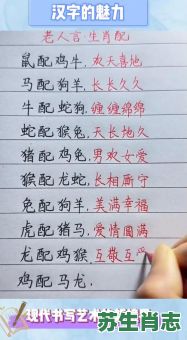 汉字的魅力
老人言·生肖配
鼠配鸡牛,欢天喜地
马配狗羊,长长久久
牛配蛇狗,缠缠绵绵
蛇配猴兔,天长地久
猪配鸡兔,男欢女爱
猴配龙蛇,长相厮守
兔配狗羊,美满幸福
虎配猪马,爱情圆满
龙配鸡猴 互敬互
鸡配马龙,
现代书写艺术
苏生肖志